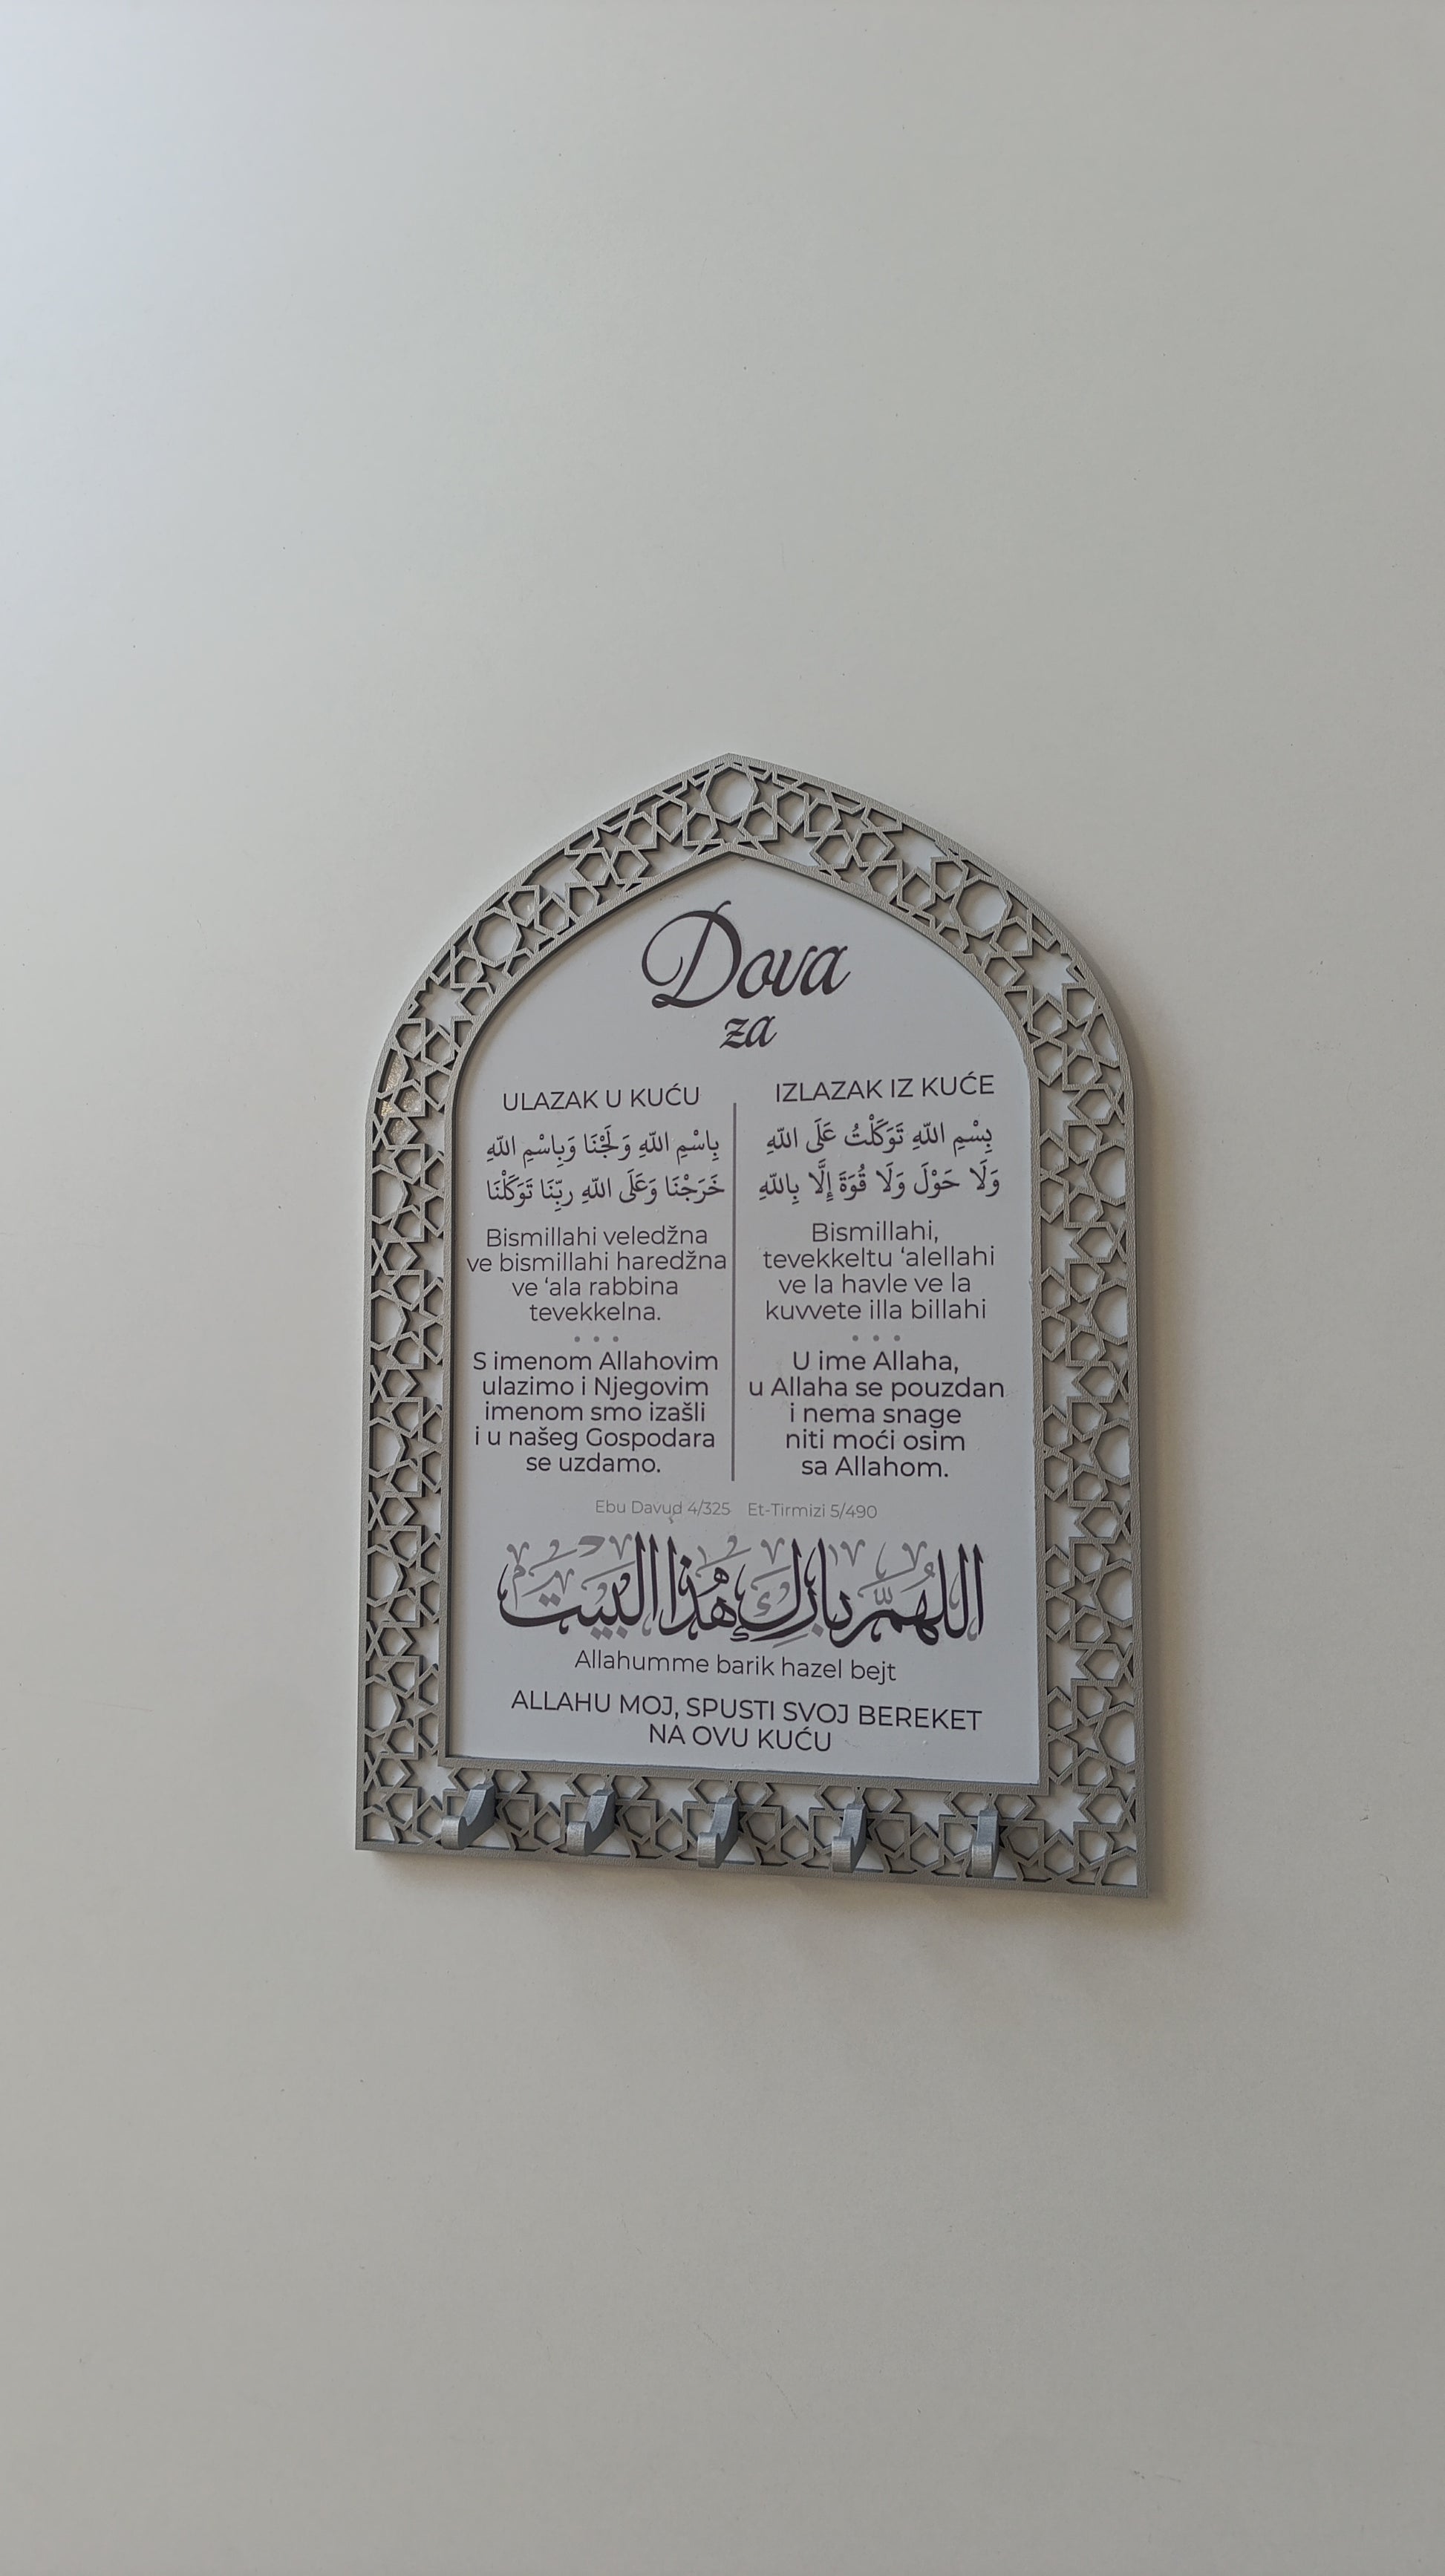 Dova
za
ULAZAK U KUĆU
بِاسْمِ اللهِ وَلَجْنَا وَبِاسْمِ اللهِ
خَرَجْنَا وَعَلَى اللهِ رَبِّنَا تَوَكَّلْنَا
Bismillahi veledžna
ve bismillahi haredžna
ve ‘ala rabbina
tevekkelna.
S imenom Allahovim
ulazimo i Njegovim
imenom smo izašli
i u našeg Gospodara
se uzdamo.
IZLAZAK IZ KUĆE
بِسْمِ اللهِ تَوَكَّلْتُ عَلَى اللهِ
وَلَا حَوْلَ وَلَا قُوَّةَ إِلَّا بِاللهِ
Bismillahi,
tevekkeltu ‘alellahi
ve la havle ve la
kuvvete illa billahi
U ime Allaha,
u Allaha se pouzdan
i nema snage
niti moći osim
sa Allahom.
Ebu Davud 4/325 Et-Tirmizi 5/490
اللهُمَّ بَارِكْ هٰذَا البَيْت
Allahumme barik hazel bejt
ALLAHU MOJ, SPUSTI SVOJ BEREKET
NA OVU KUĆU